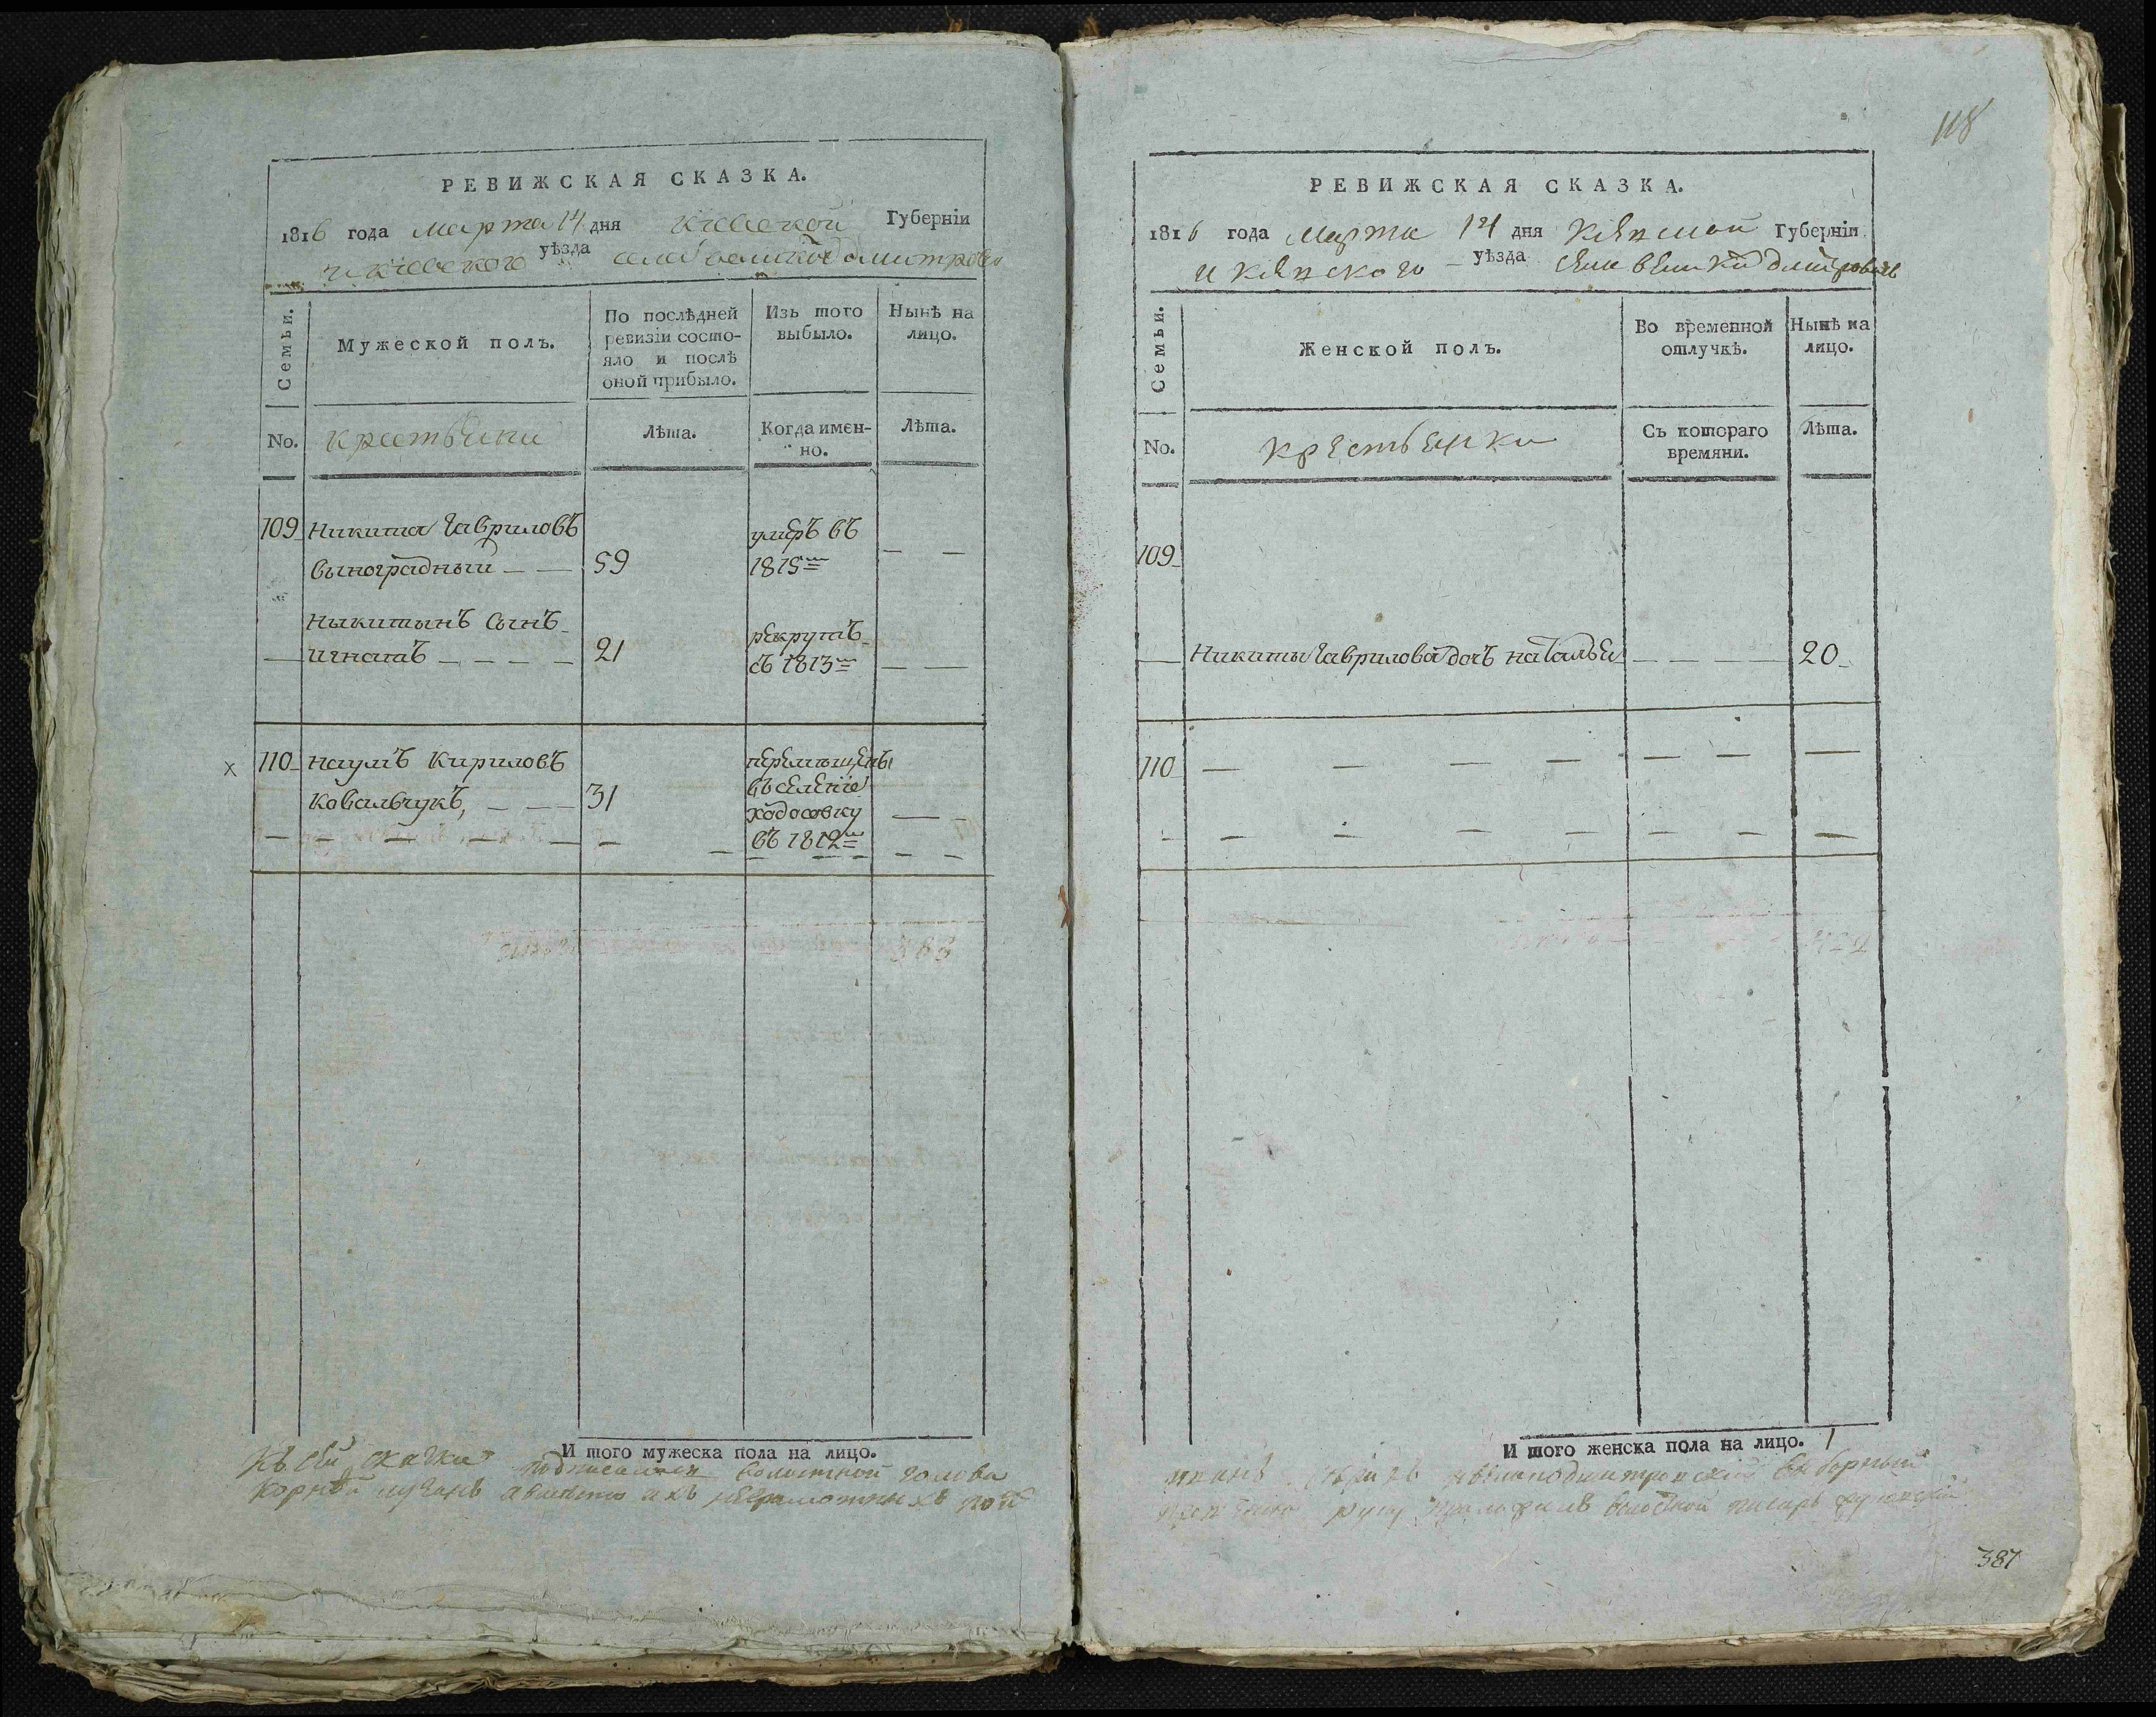 РЕВИЖСКАЯ СКАЗКА.
1816 года марта 14 дня Киевской Губерніи
и Киевского уѣзда села великой дмитровки
Семьи.
Мужеской полъ.
По послѣдней
ревизіи состо-
яло и послѣ
оной прибыло.
Изъ того
выбыло.
Нынѣ на
лицо.
No.
крестьяни
Лѣта.
Когда имен-
но.
Лѣта.
109 Никита Гавриловъ
Выноградный — — 59
умеръ въ
1815м — —
Ныкитынъ Сынъ
— Игнатъ — — — — 21
рекрутъ
съ 1813м — —
х 110 Наумъ Кириловъ
Ковальчукъ, — — — 31
перемѣщенъ
въ селеніе
Ходосовку
въ 1812м — —
И того мужеска пола на лицо.
Къ сей скаски подписался волостной голова
Корней
неграмотныхъ
118
РЕВИЖСКАЯ СКАЗКА.
1816 года Марта 14 дня Киевской Губерніи
и Киевского уѣзда села великой дмитровки
Семьи.
Женской полъ.
Во временной
отлучкѣ.
Нынѣ на
лицо.
No.
крестьянки
Съ котораго
времяни.
Лѣта.
109
— Никиты Гаврилова дочь наталья — — — — 20
110 — — — — — — —
И того женска пола на лицо. 1
выборный
писарь
387